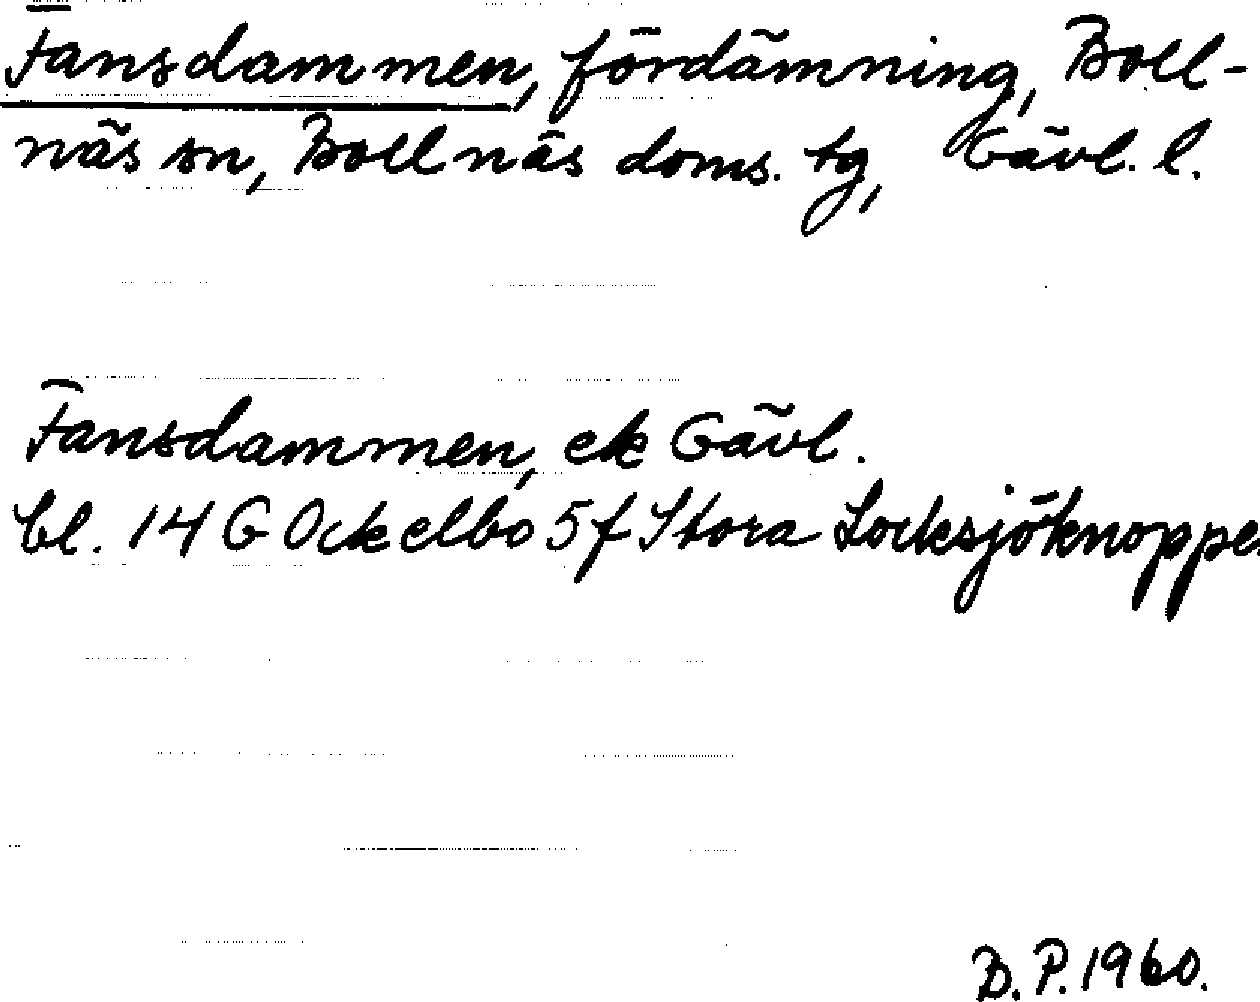 Fansdammen, fördämning, Boll-
näs sn, Bollnäs doms. tg, Gävl. l.
Fansdammen, ek Gävl.
bl. 14 G Ockelbo 5 f Stora Locksjöknoppen
B. P. 1960.